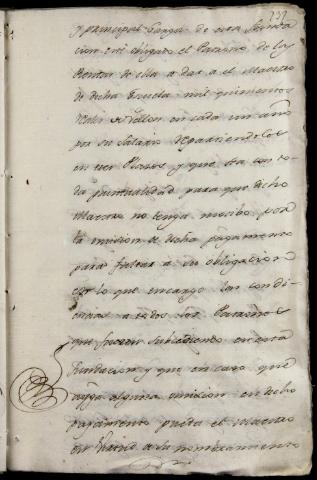 237
y principal Carga de esta funda
cion esté obligado el Patrono de las
Rentas de ella a dar a el Maestro
de dicha Escuela mil quinientos
Reales de Vellon en cada un año
por su salario repartiendolos
en tres Plazos y que sea con to
da puntualidad para que dicho
Maestro no tenga motibo por
la omision de dicho pagamento
para faltar à su obligacion
por lo que encargo las condi
encias a todos los Patronos
que fueren subcediendo en esta
fundacion y que en caso que
ayga alguna omision en dicho
pagamento pueda el Maestro
en Virtud de su nombramiento